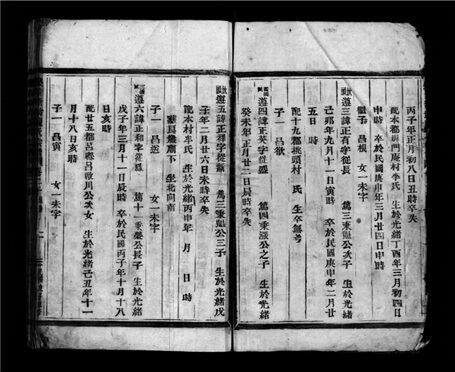 丙子年正月初八日丑時卒失
配本都門庵村李氏 生於光緒丁酉年三月初四日
申時 卒於民國庚申年三月廿四日申時
繼子 昌根 女一未字
遊三諱正有字從長 萬三秉公次子 生於光緒
己卯年九月十一日寅時 卒於民國庚申年二月廿
五日 時
配十九都桃頭村 氏 生卒無考
子 昌
遊四諱正英字從 萬四秉公之子 生於光緒
癸未年正月廿二日辰時卒失
遊五諱正和字從 萬三秉公三子 生於光緒戊
子年二月廿六日未時卒失
配本村李氏 生於光緒丙申年 月 日 時
下 坐北向南
子一 昌送 女一未字
遊六諱正初字從 萬十一秉公長子 生於光緒
戊子年三月十一日辰時 卒於民國丙子年十月十八
日亥時
配廿五都呂呂川公次女 生於光緒己丑年十一
月十八日亥時
子一 昌寅 女一未字